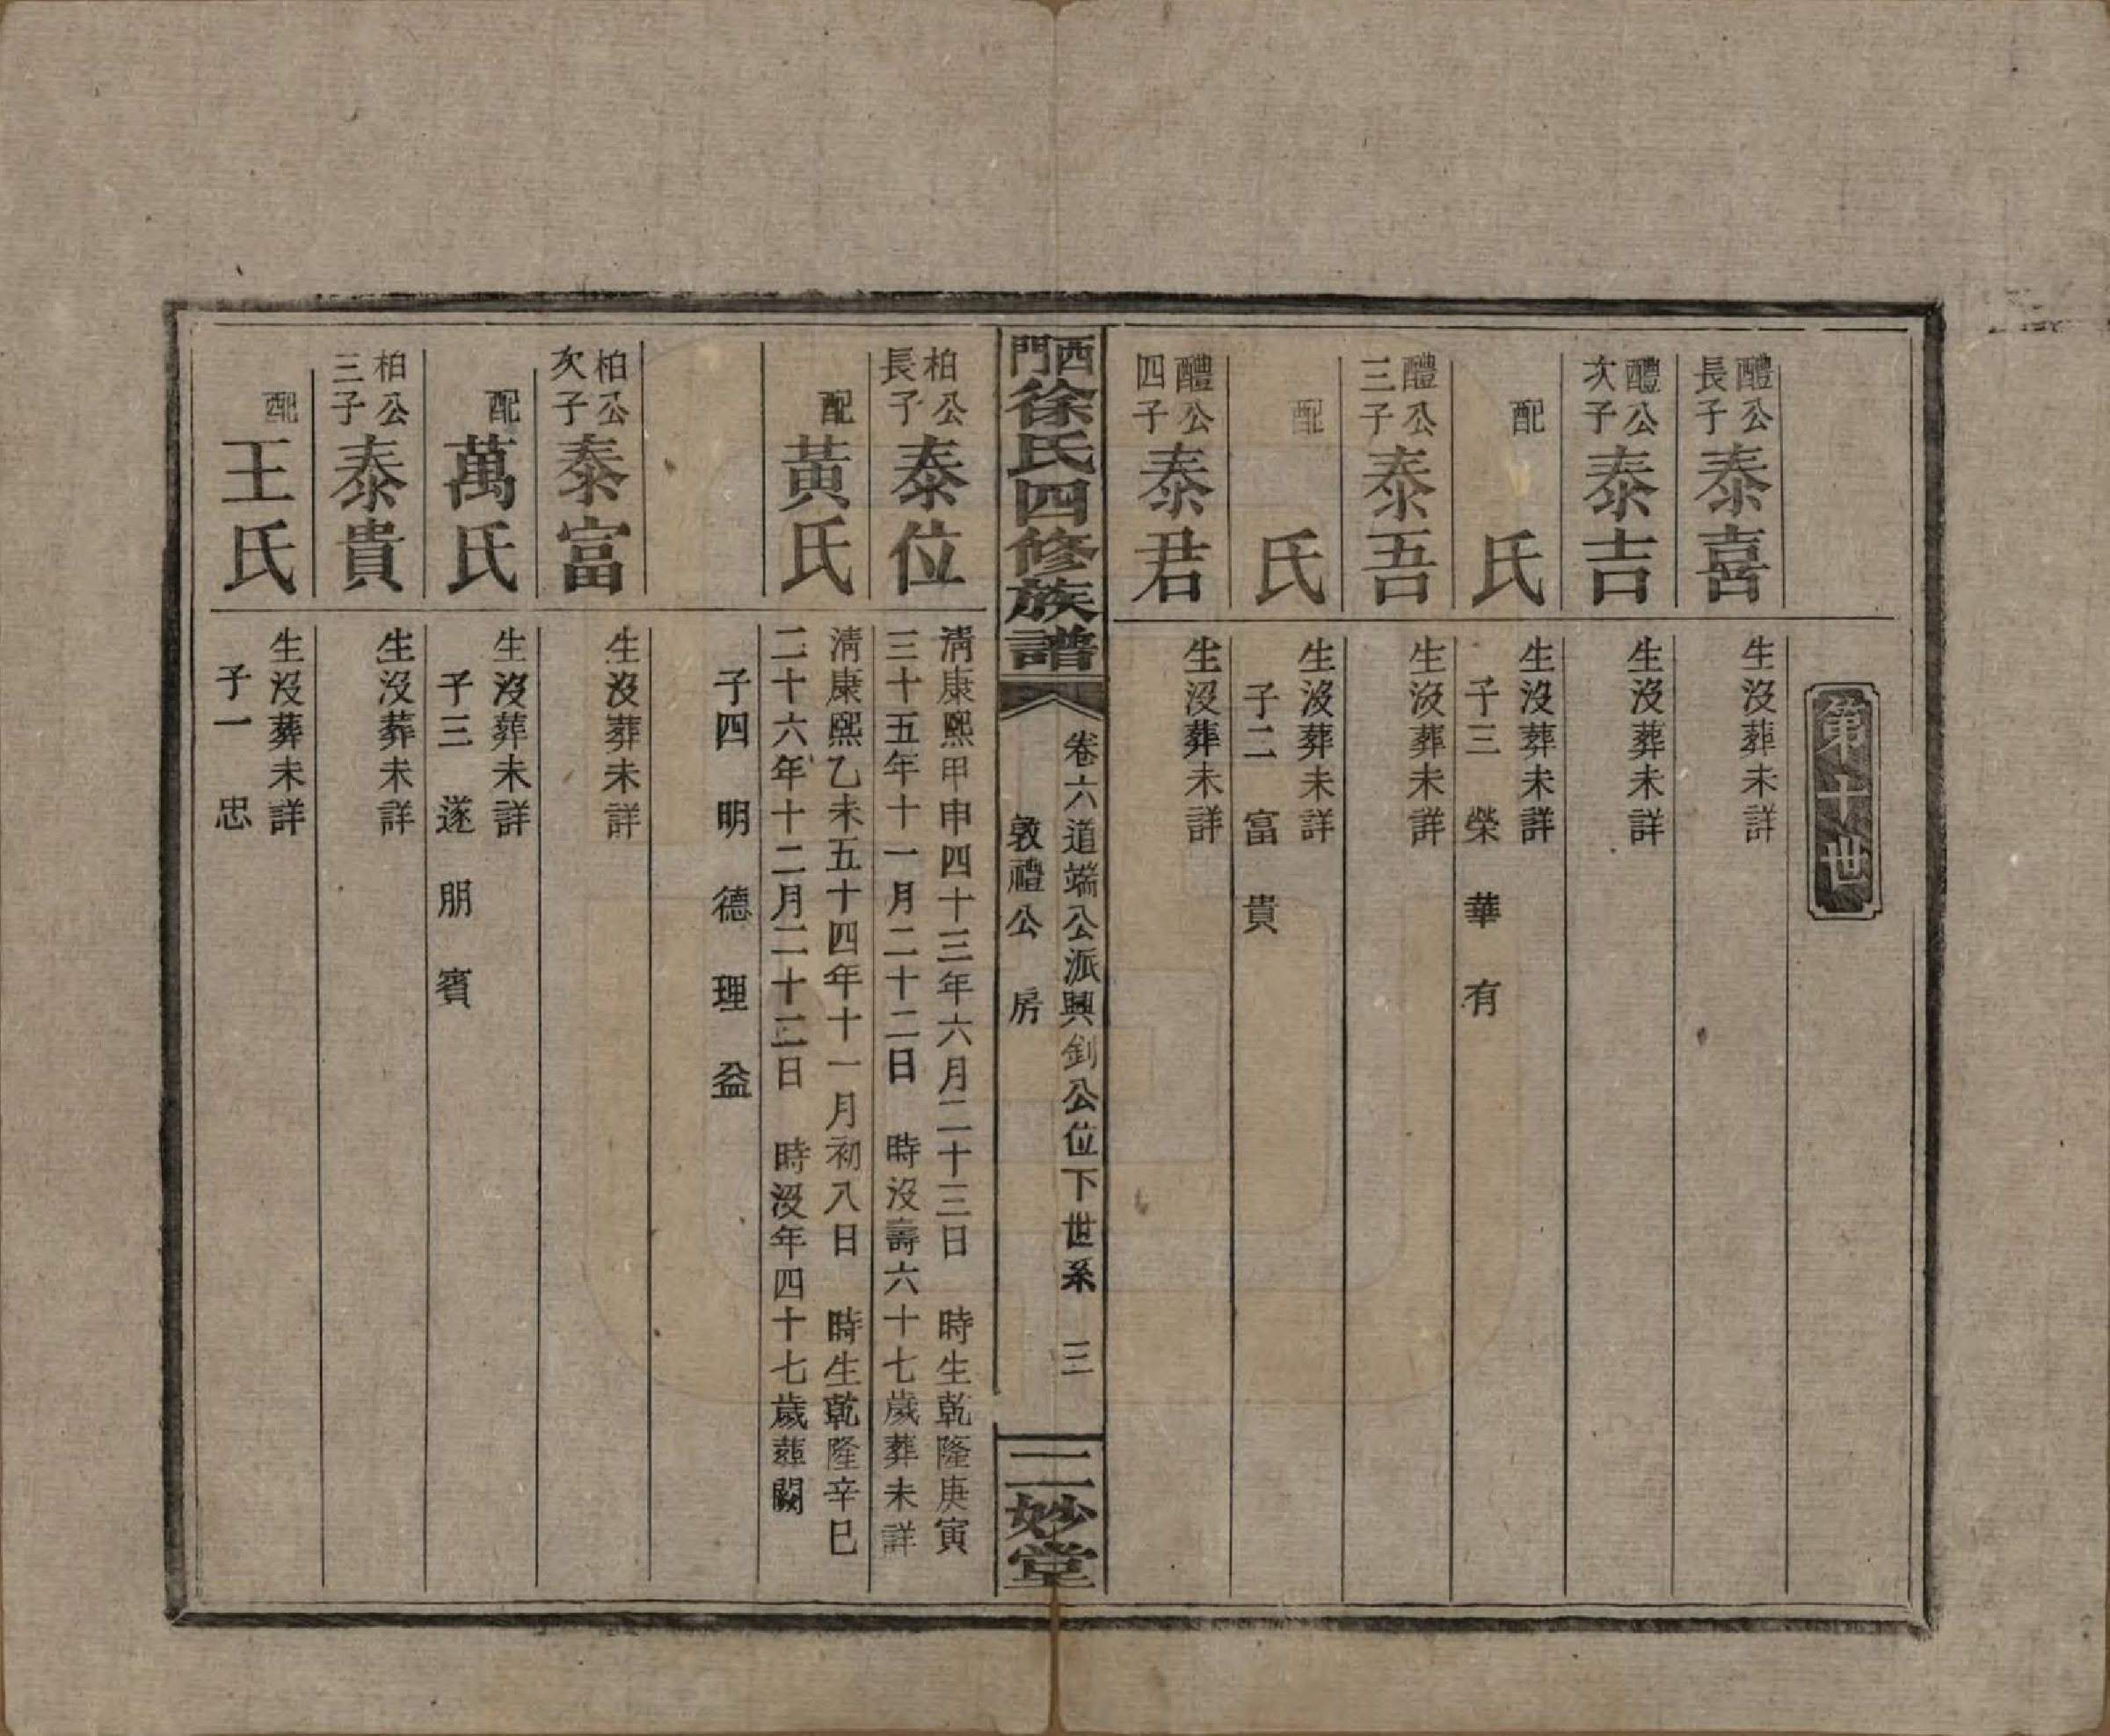 第十世
醴公長子
泰喜
生沒葬未詳
醴公次子
泰吉
生沒葬未詳
配
氏
生沒葬未詳
子三 榮 華 有
醴公三子
泰吾
生沒葬未詳
配
氏
生沒葬未詳
子二 富 貴
醴公四子
泰君
生沒葬未詳
西門徐氏四修族譜
卷六道端公派興釗公位下世系 三
敦禮公 房
二妙堂
柏公長子
泰位
清康熙甲申四十三年六月二十三日 時生乾隆庚寅
三十五年十一月二十二日 時沒壽六十七歲葬未詳
配
黃氏
清康熙乙未五十四年十一月初八日 時生乾隆辛巳
二十六年十二月二十二日 時沒年四十七歲葬闕
子四 明 德 理 益
柏公次子
泰富
生沒葬未詳
配
萬氏
生沒葬未詳
子三 遂 朋 賓
柏公三子
泰貴
生沒葬未詳
配
王氏
生沒葬未詳
子一 忠